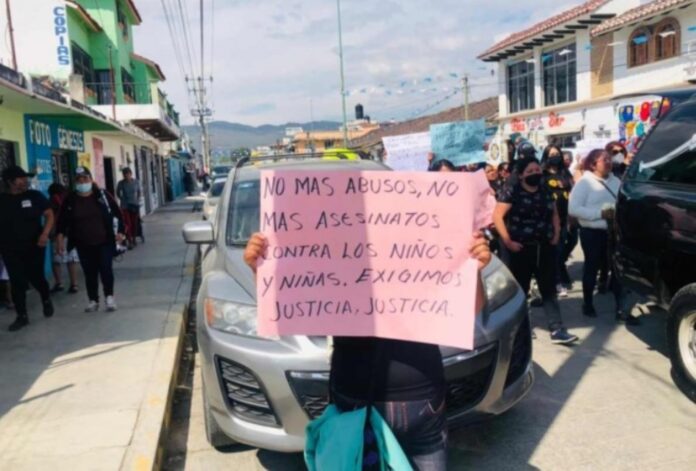 COPIAS
FOTO GENESIS
NO MAS ABUSOS, NO
MAS ASESINATOS
CONTRA LOS NIÑOS
Y NIÑAS. EXIGIMOS
JUSTICIA, JUSTICIA.